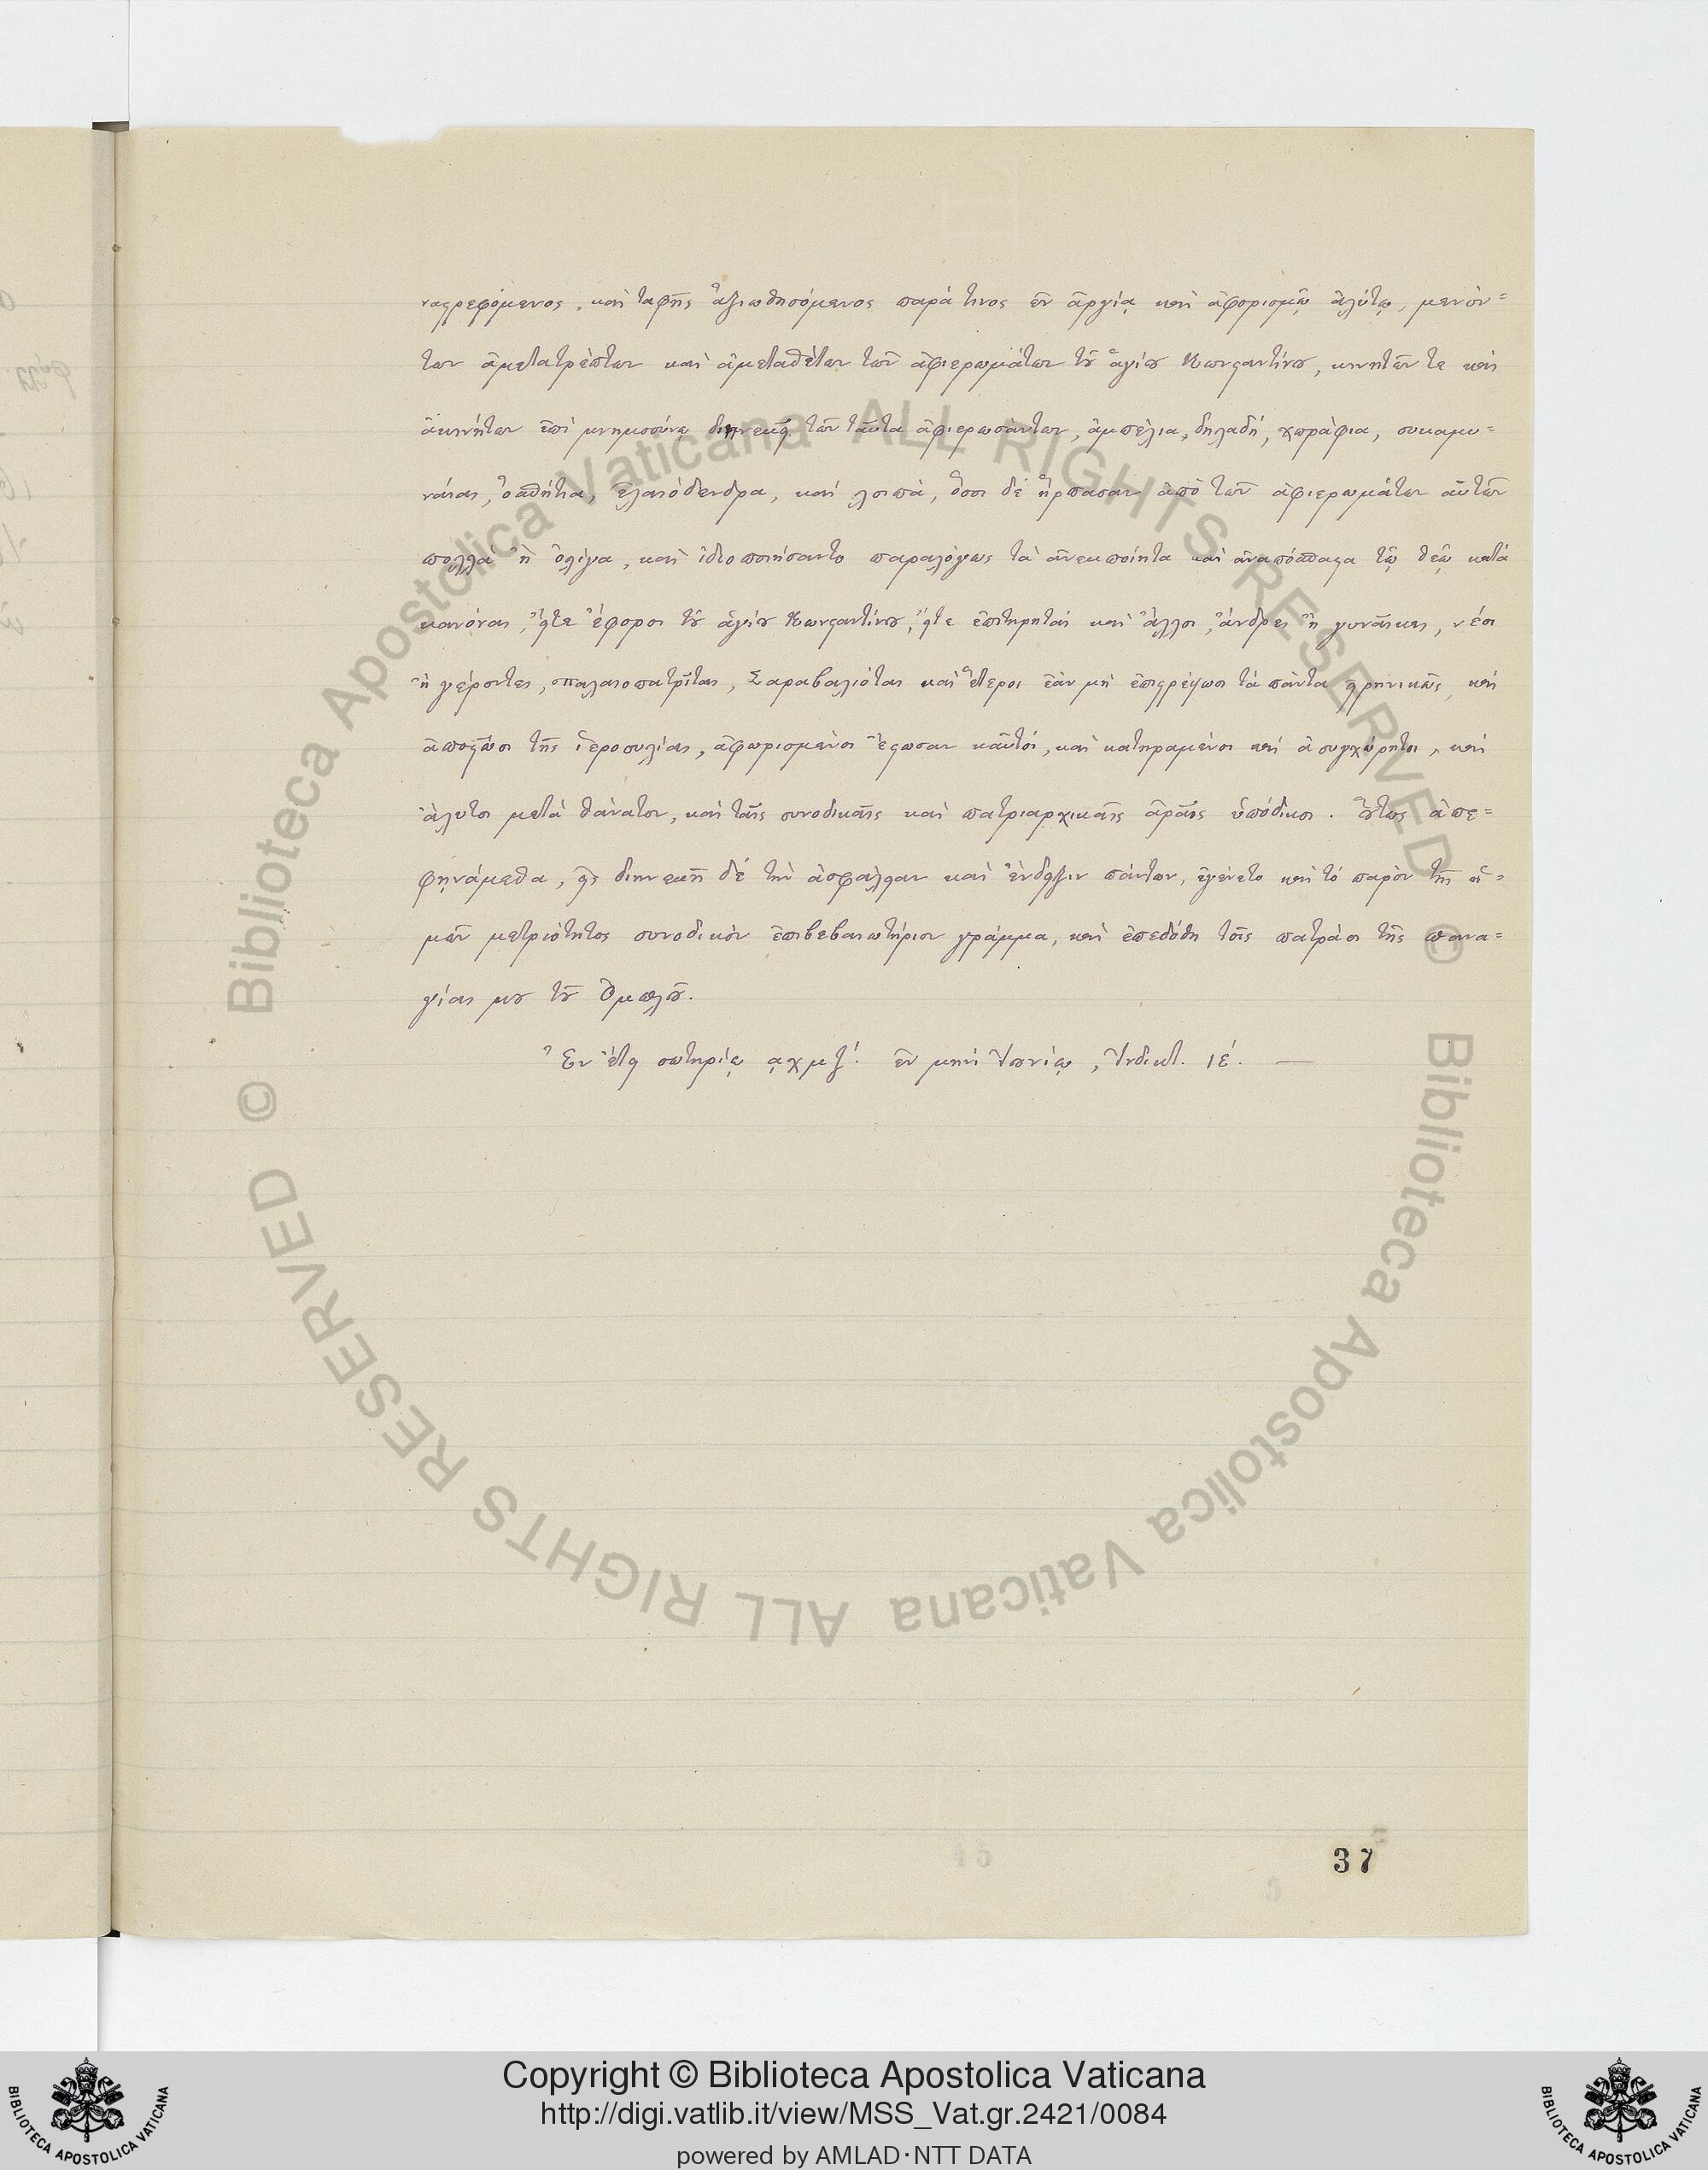 ναςρεφόμενος, καὶ ταφῆς ἀξιωθησόμενος παρά τινος ἐν ἀργίᾳ καὶ ἀφορισμῷ ἀλύτῳ, μενόν=
των ἀμετατρέπτων καὶ ἀμεταθέτων τῶν ἀφιερωμάτων τȣ͂ ἁγίȣ Κωνςαντίνȣ, κινητῶν τε καὶ
ἀκινήτων ἐπὶ μνημοσύνῳ διηνεκεῖ τῶν ταῦτα ἀφιερωσάντων, ἀμπέλια, δηλαδή, χωράφια, συκαμι=
νέας, ὀσπήτια, ἐλαιόδενδρα, καὶ λοιπά, ὅσοι δὲ ἥρπασαν ἀπὸ τῶν ἀφιερωμάτων αὐτῶν
πολλὰ ἢ ὀλίγα, καὶ ἰδιοποιήσαντο παραλόγως τὰ ἀνεκποίητα καὶ ἀναπόσπαςα τῷ θεῷ κατὰ
κανόνας, εἴτε ἔφοροι τȣ͂ ἁγίȣ Κωνςαντίνȣ, εἴτε ἐπιτηρηταὶ καὶ ἄλλοι, ἄνδρες ἢ γυναῖκες, νέοι
ἢ γέροντες, παλαιοπατρῖται, Σαραβαλιόται καὶ ἕτεροι ἐὰν μὴ ἐπιςρέψωσι τὰ πάντα εἰρηνικῶς, καὶ
ἀποςῶσι τῆς ἱεροσυλίας, ἀφωρισμένοι ἔςωσαν καὐτοί, καὶ κατηραμένοι καὶ ἀσυγχώρητοι, καὶ
ἄλυτοι μετὰ θάνατον, καὶ ταῖς συνοδικαῖς καὶ πατριαρχικαῖς ἀραῖς ὑπόδικοι. Οὕτως ἀπε=
φηνάμεθα, εἰς διηνεκῆ δὲ τὴν ἀσφάλειαν καὶ ἔνδειξιν πάντων, ἐγένετο καὶ τὸ παρὸν τῆς ἡ=
μῶν μετριότητος συνοδικὸν ἐπιβεβαιωτήριον γράμμα, καὶ ἐπεδόθη τοῖς πατράσι τῆς πανα=
γίας μȣ τȣ͂ Ὀμπλȣ͂.
Ἐν ἔτει σωτηρίῳ αχμζʹ. ἐν μηνὶ Ἰȣνίῳ, Ἰνδικτ. ιέ. —
37
Copyright © Biblioteca Apostolica Vaticana
http://digi.vatlib.it/view/MSS_Vat.gr.2421/0084
powered by AMLAD·NTT DATA
BIBLIOTECA APOSTOLICA VATICANA
BIBLIOTECA APOSTOLICA VATICANA
© Biblioteca Apostolica Vaticana ALL RIGHTS RESERVED
© Biblioteca Apostolica Vaticana ALL RIGHTS RESERVED